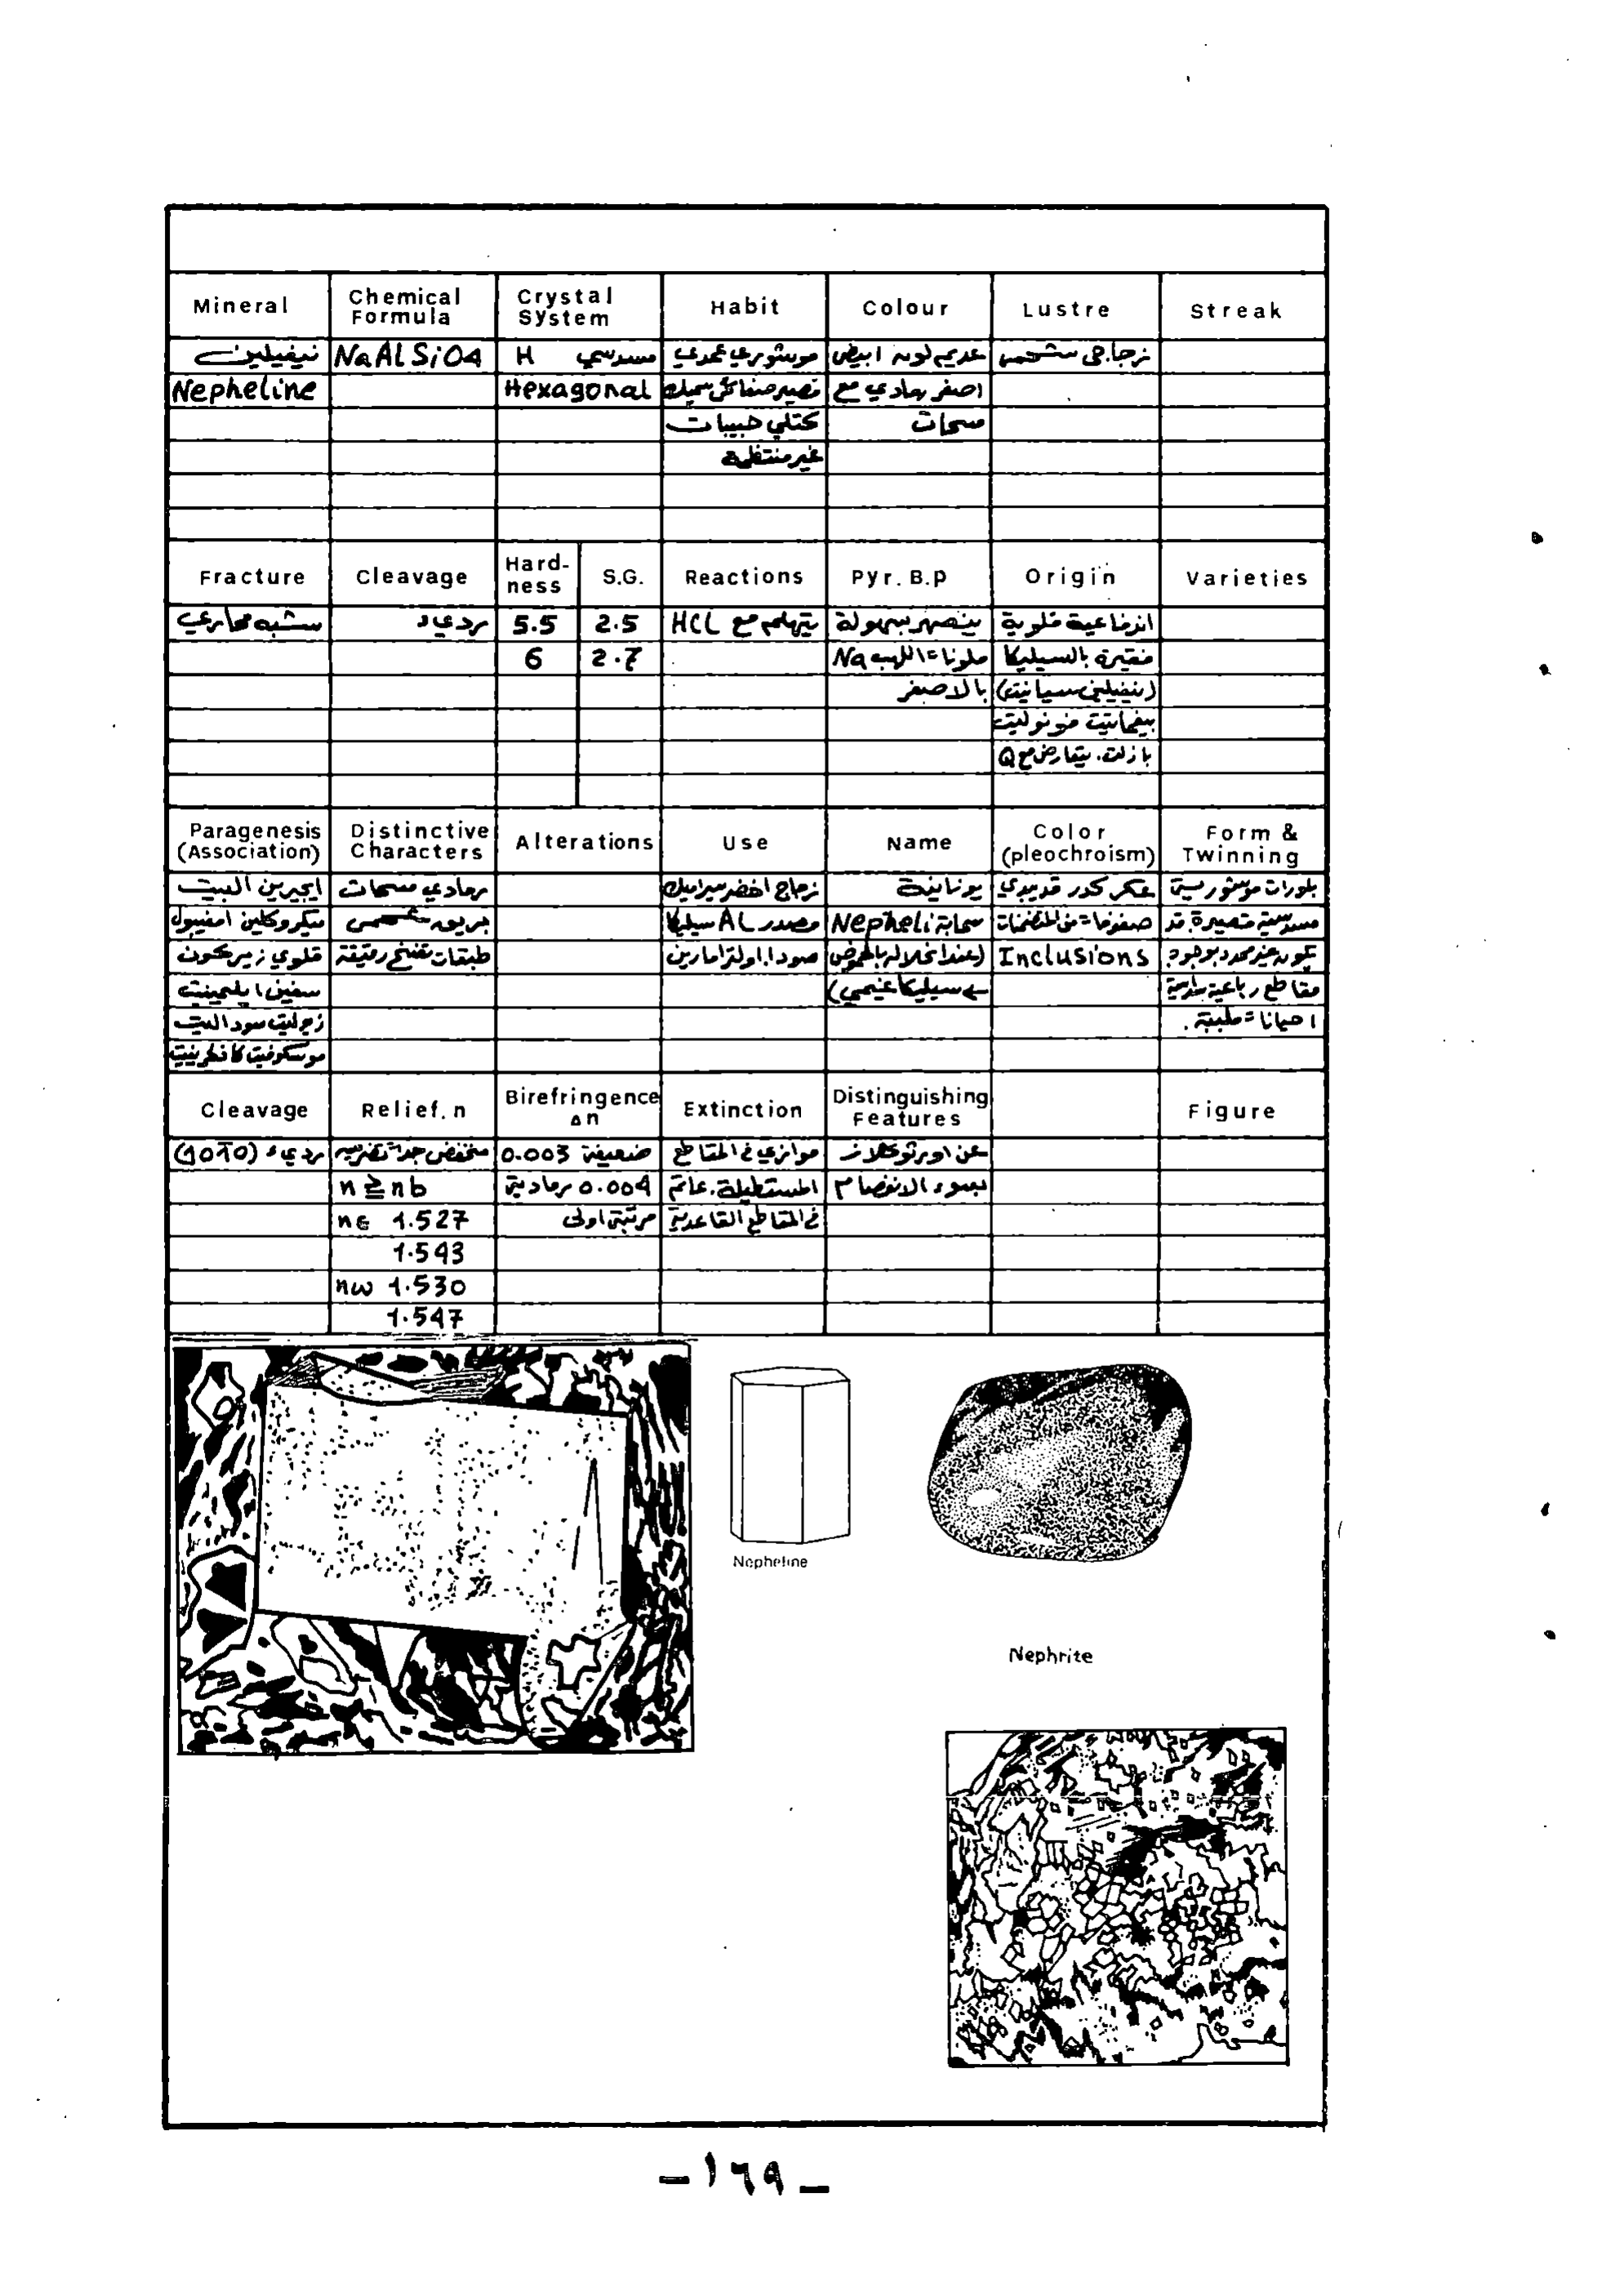 Mineral
Chemical Formula
Crystal System
Habit
Colour
Lustre
Streak
نيفيلين NaAlSiO4 H مسدسي موشوري عمدي عديم لون ابيض زجاجي شحمي
Nepheline Hexagonal قصير صفائحي سميك اصفر رمادي مع
كتلي حبيبات سحات
غير منتظمة
Fracture
Cleavage
Hard-ness
S.G.
Reactions
Pyr. B.p
Origin
Varieties
شبه محاري رديء 5.5 2.5 يتهلم مع HCL ينصهر بسهولة اندفاعية قلوية
6 2.7 ملونا اللهب Na فقيرة بالسيليكا
بالاصفر (نيفيلين سيانيت)
بيغماتيت فونوليت
بازلت. يتعارض مع Q
Paragenesis (Association)
Distinctive Characters
Alterations
Use
Name
Color (pleochroism)
Form & Twinning
ايجيرين البيت رمادي سحات زجاج اخضر سيراميك يونانية عكر كدر قد يبدي بلورات موشورية
ميكروكلين امفيبول بريق شحمي مصدر AL سيليكا سحابة Nepheli صفوفا من المتضمنات مسدسية قصيرة. قد
قلوي زيركون طبقات تفسخ رقيقة صودا. اولترامارين (عند انحلاله بالحموض Inclusions يكون غير محدد بوجوه
سفين ايلمينيت سيليكا غيمي) مقاطع رباعية سداسية
زيوليت سودالیت احيانا طيفية.
موسكوفيت كانكرينيت
Cleavage
Relief. n
Birefringence Δn
Extinction
Distinguishing Features
Figure
رديء (1010) منخفض جدا تضريسه ضعيفة 0.003 موازي في المقاطع عن اورثوكلاز
n ≧ nb 0.004 رمادية المستطيلة. عاتم بسوء الانفصام
nε 1.527 مرتبة اولى في المقاطع القاعدية
1.543
nω 1.530
1.547
Nepheline
Nephrite
– ١٦٩ –